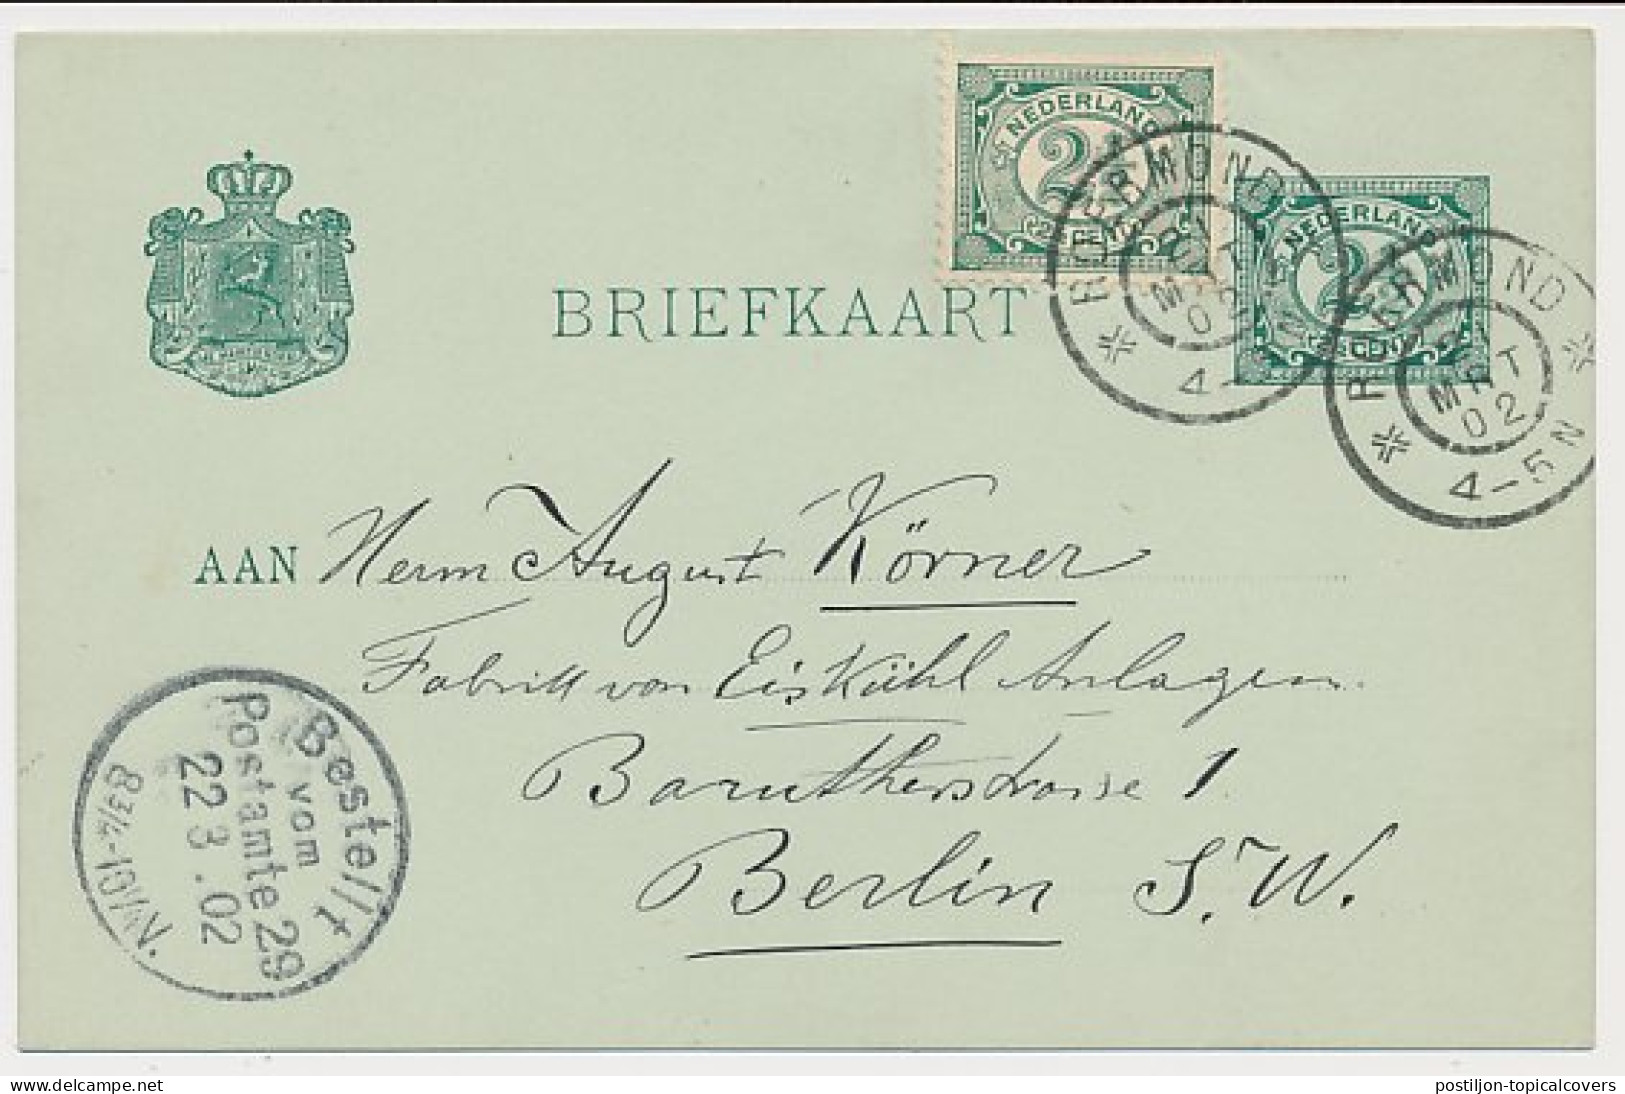 NEDERLAND
2½
(2½ CENT)
NEDERLAND
2½
(2½ CENT)
ROERMOND
21
MRT
02
4-5N
ROERMOND
21
MRT
02
4-5N
BRIEFKAART
JE MAINTIENDRAI
AAN Herrn August Körner
Fabrik von Eis Kühl Anlagen
Barutherstrasse 1
Berlin S.W.
Bestellt
vom
Postamte 29
22 3.02
8¾-10¼N.
delcampe.net
postiljon-topicalcovers